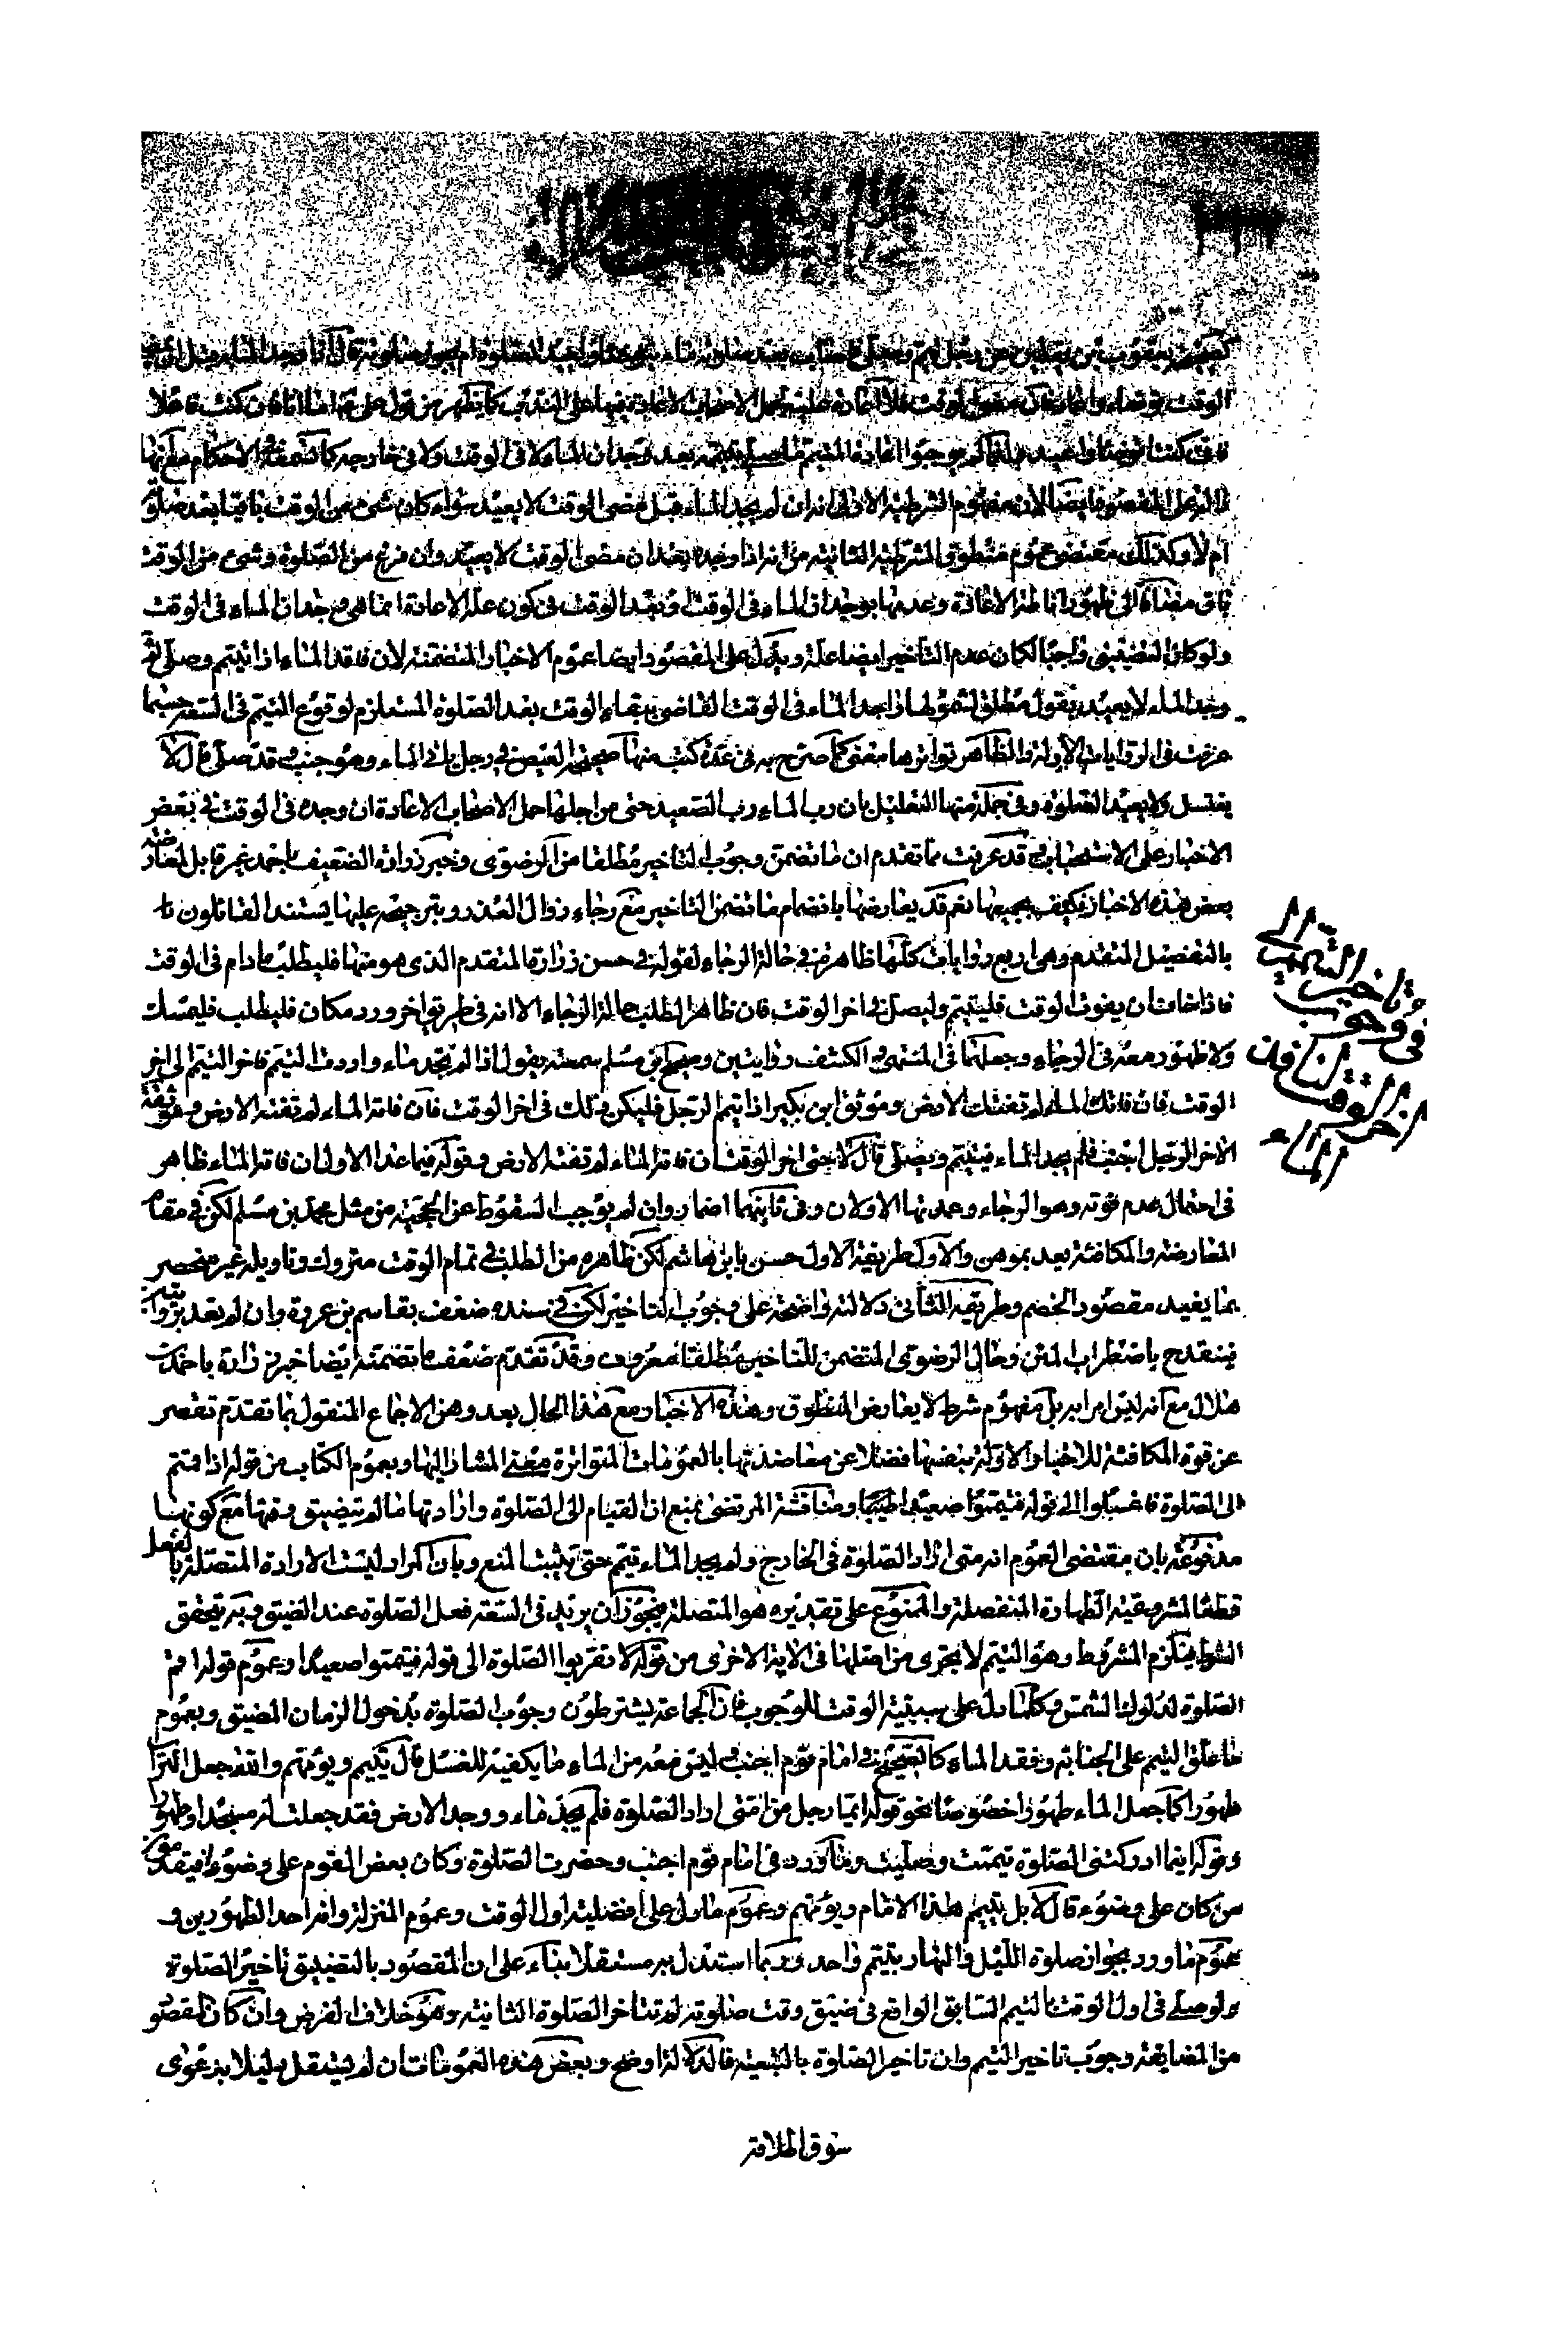 كصحيحة يعقوب بن يقطين عن رجل تيمم وصلى فاصاب بعد صلوته ماء ايتوضأ ويعيد الصلوة ام يجوز صلوته قال اذا وجد الماء قبل ان يمضى
الوقت توضأ واعاد فان مضى الوقت فلا اعادة عليه وحمل الاصحاب الاعادة فيها على الندب كما يظهر من قوله على
فانى كنت اتوضأ واعيد لم يوجبوا اعادة المتيمم ما صلى بتيممه بعد وجدان الماء لا فى الوقت ولا فى خارجه كما ستعرفه فى الاحكام مع انها
المقصود ايضا لان مفهوم الشرطية الاولى انه ان لم يجد الماء قبل مضى الوقت لا يعيد سواء كان شىء من الوقت باقيا بعد صلوته
ام لا وكذلك مقتضى عموم منطوق الشرطية الثانية من انه اذا وجده بعد ان مضى الوقت لا يعيد وان فرغ من الصلوة وشىء من الوقت
باق مضافا الى ظهور اناطة الاعادة وعدمها بوجدان الماء فى الوقت وبعد الوقت فى كون علة الاعادة انما هى وجدان الماء فى الوقت
ولو كان التضييق واجبا لكان عدم التأخير ايضا علة ويدل على المقصود ايضا عموم الاخبار المتضمنة لان فاقد الماء اذا تيمم وصلى ثم
وجد الماء لا يعيد بقول مطلق لشمولها واجد الماء فى الوقت القاضى ببقاء الوقت بعد الصلوة المستلزم لوقوع التيمم فى السعة حسبما
عرفت فى الروايات الاولة والظاهر تواترها معنى كما صرح به فى عدة كتب منها صحيحة العيص فى رجل ياتى الماء وهو جنب وقد صلى قال لا
يغتسل ولا يعيد الصلوة وفى جملة منها التعليل بان رب الماء رب الصعيد حتى من اجلها حمل الاصحاب الاعادة ان وجده فى الوقت فى بعض
الاخبار على الاستحباب وقد عرفت مما تقدم ان ما تضمن وجوب التأخير مطلقا من الرضوى وخبر زرارة الضعيف باحمد غير قابل لمعارضة
بعض هذه الاخبار فكيف بجميعها نعم قد يعارضها بانضمام ما تضمن التاخير مع رجاء زوال العذر وبترجيحه عليها يستند القائلون
بالتفصيل المتقدم وهى اربع روايات كلها ظاهرة فى حالة الرجاء لقوله فى حسن زرارة المتقدم الذى هو منها فليطلب ما دام فى الوقت
فاذا خاف ان يفوت الوقت فليتيمم وليصل فى اخر الوقت فان ظاهر الطلب حالة الرجاء الا انه فى طريق اخر ورد مكان فليطلب فليمسك
ولا ظهور معه فى الرجاء وجعلهما فى المنتهى والكشف روايتين وصحيح ابن مسلم سمعته يقول اذا لم تجد ماء واردت التيمم فاخر التيمم الى اخر
الوقت فان فاتك الماء لم تفتك الارض وموثق ابن بكير اذا تيمم الرجل فليكن ذلك فى اخر الوقت فان فاته الماء لم تفته الارض وموثقة
الاخر الرجل اجنب فلم يجد الماء فيتيمم ويصلى قال لا حتى اخر الوقت ان فاته الماء لم تفته الارض وقوله فيما عدا الاول ان فاته الماء ظاهر
فى احتمال عدم فوته وهو الرجاء وعمدتها الاولان وفى ثانيهما اضمار وان لم يوجب السقوط عن الحجية من مثل محمد بن مسلم لكن فى مقام
المعارضة والمكافئة يعد بموهن والاول طريقه الاول حسن بابن هاشم لكن ظاهره من الطلب فى تمام الوقت متروك وتاويله غير منحصر
بما يفيد مقصود الخصم وطريقه الثانى دلالته واضحة على وجوب التاخير لكن فى سنده ضعف بقاسم بن عروة وان لم يعد بروايته
فينقدح باضطراب المتن وحال الرضوى المتضمن للتاخير مطلقا معروف وقد تقدم ضعف ما تضمنه ايضا خبر زرارة باحمد بن
هلال مع انه ليس امرا به بل مفهوم شرط لا يعارض المنطوق وهذه الاخبار مع هذا الحال بعد وهن الاجماع المنقول بما تقدم تقصر
عن قوة المكافئة للاخبار الاولة بنفسها فضلا عن معاضدتها بالعمومات المتواترة معنى المشار اليها وبعموم الكتاب من قوله اذا قمتم
الى الصلوة فاغسلوا الى قوله فتيمموا صعيدا طيبا ومناقشة المرتضى بمنع ان القيام الى الصلوة وارادتها ما لم يتضيق وقتها مع كونها
مدفوعة بان مقتضى العموم انه متى اراد الصلوة فى الخارج ولم يجد الماء تيمم حتى يثبت المنع وبان المراد ليست الارادة المتصلة بالفعل
قطعا لمشروعية الطهارة المنفصلة والممنوع على تقديره هو المتصلة فيجوز ان يريد فى السعة فعل الصلوة عند الضيق وبه يتحقق
الشرط فيلزم المشروط وهو التيمم لا يجرى من اصلها فى الاية الاخرى من قوله لا تقربوا الصلوة الى قوله فتيمموا صعيدا وعموم قوله اقم
الصلوة لدلوك الشمس وكلما دل على سببية الوقت للوجوب فان الجماعة يشترطون وجوب الصلوة بدخول الزمان المضيق وبعموم
ما علق التيمم على الجنابة وفقد الماء كالصحيح فى امام قوم اجنب وليس معه من الماء ما يكفيه للغسل قال يتيمم ويؤمهم والله جعل التراب
طهورا كما جعل الماء طهورا خصوصا نحو قوله ايما رجل من امتى اراد الصلوة فلم يجد ماء ووجد الارض فقد جعلت له مسجدا وطهورا
وقوله اينما ادركتنى الصلوة تيممت وصليت وما ورد فى امام قوم اجنب وحضرت الصلوة وكان بعض القوم على وضوء افيقدمون
من كان على وضوء قال لا بل يتيمم هذا الامام ويؤمهم وعموم ما دل على افضلية اول الوقت وعموم المنزلة وانه احد الطهورين و
عموم ما ورد بجواز صلوة الليل والنهار بتيمم واحد وربما استدل به مستقلا بناء على ان المقصود بالتضييق تاخير الصلوة
ولو صلى فى اول الوقت بالتيمم السابق الواقع فى ضيق وقت صلوته لم تتاخر الصلوة الثانية وهو خلاف الفرض وان كان المقصود
من المضايقة وجوب تاخير التيمم وان تاخير الصلوة بالتبعية فالدلالة اوضح وبعض هذه العمومات ان لم يستقل دليلا بدعوى
سوق اطلاقه
فى وجوب
تاخير التيمم الى
اخر الوقت